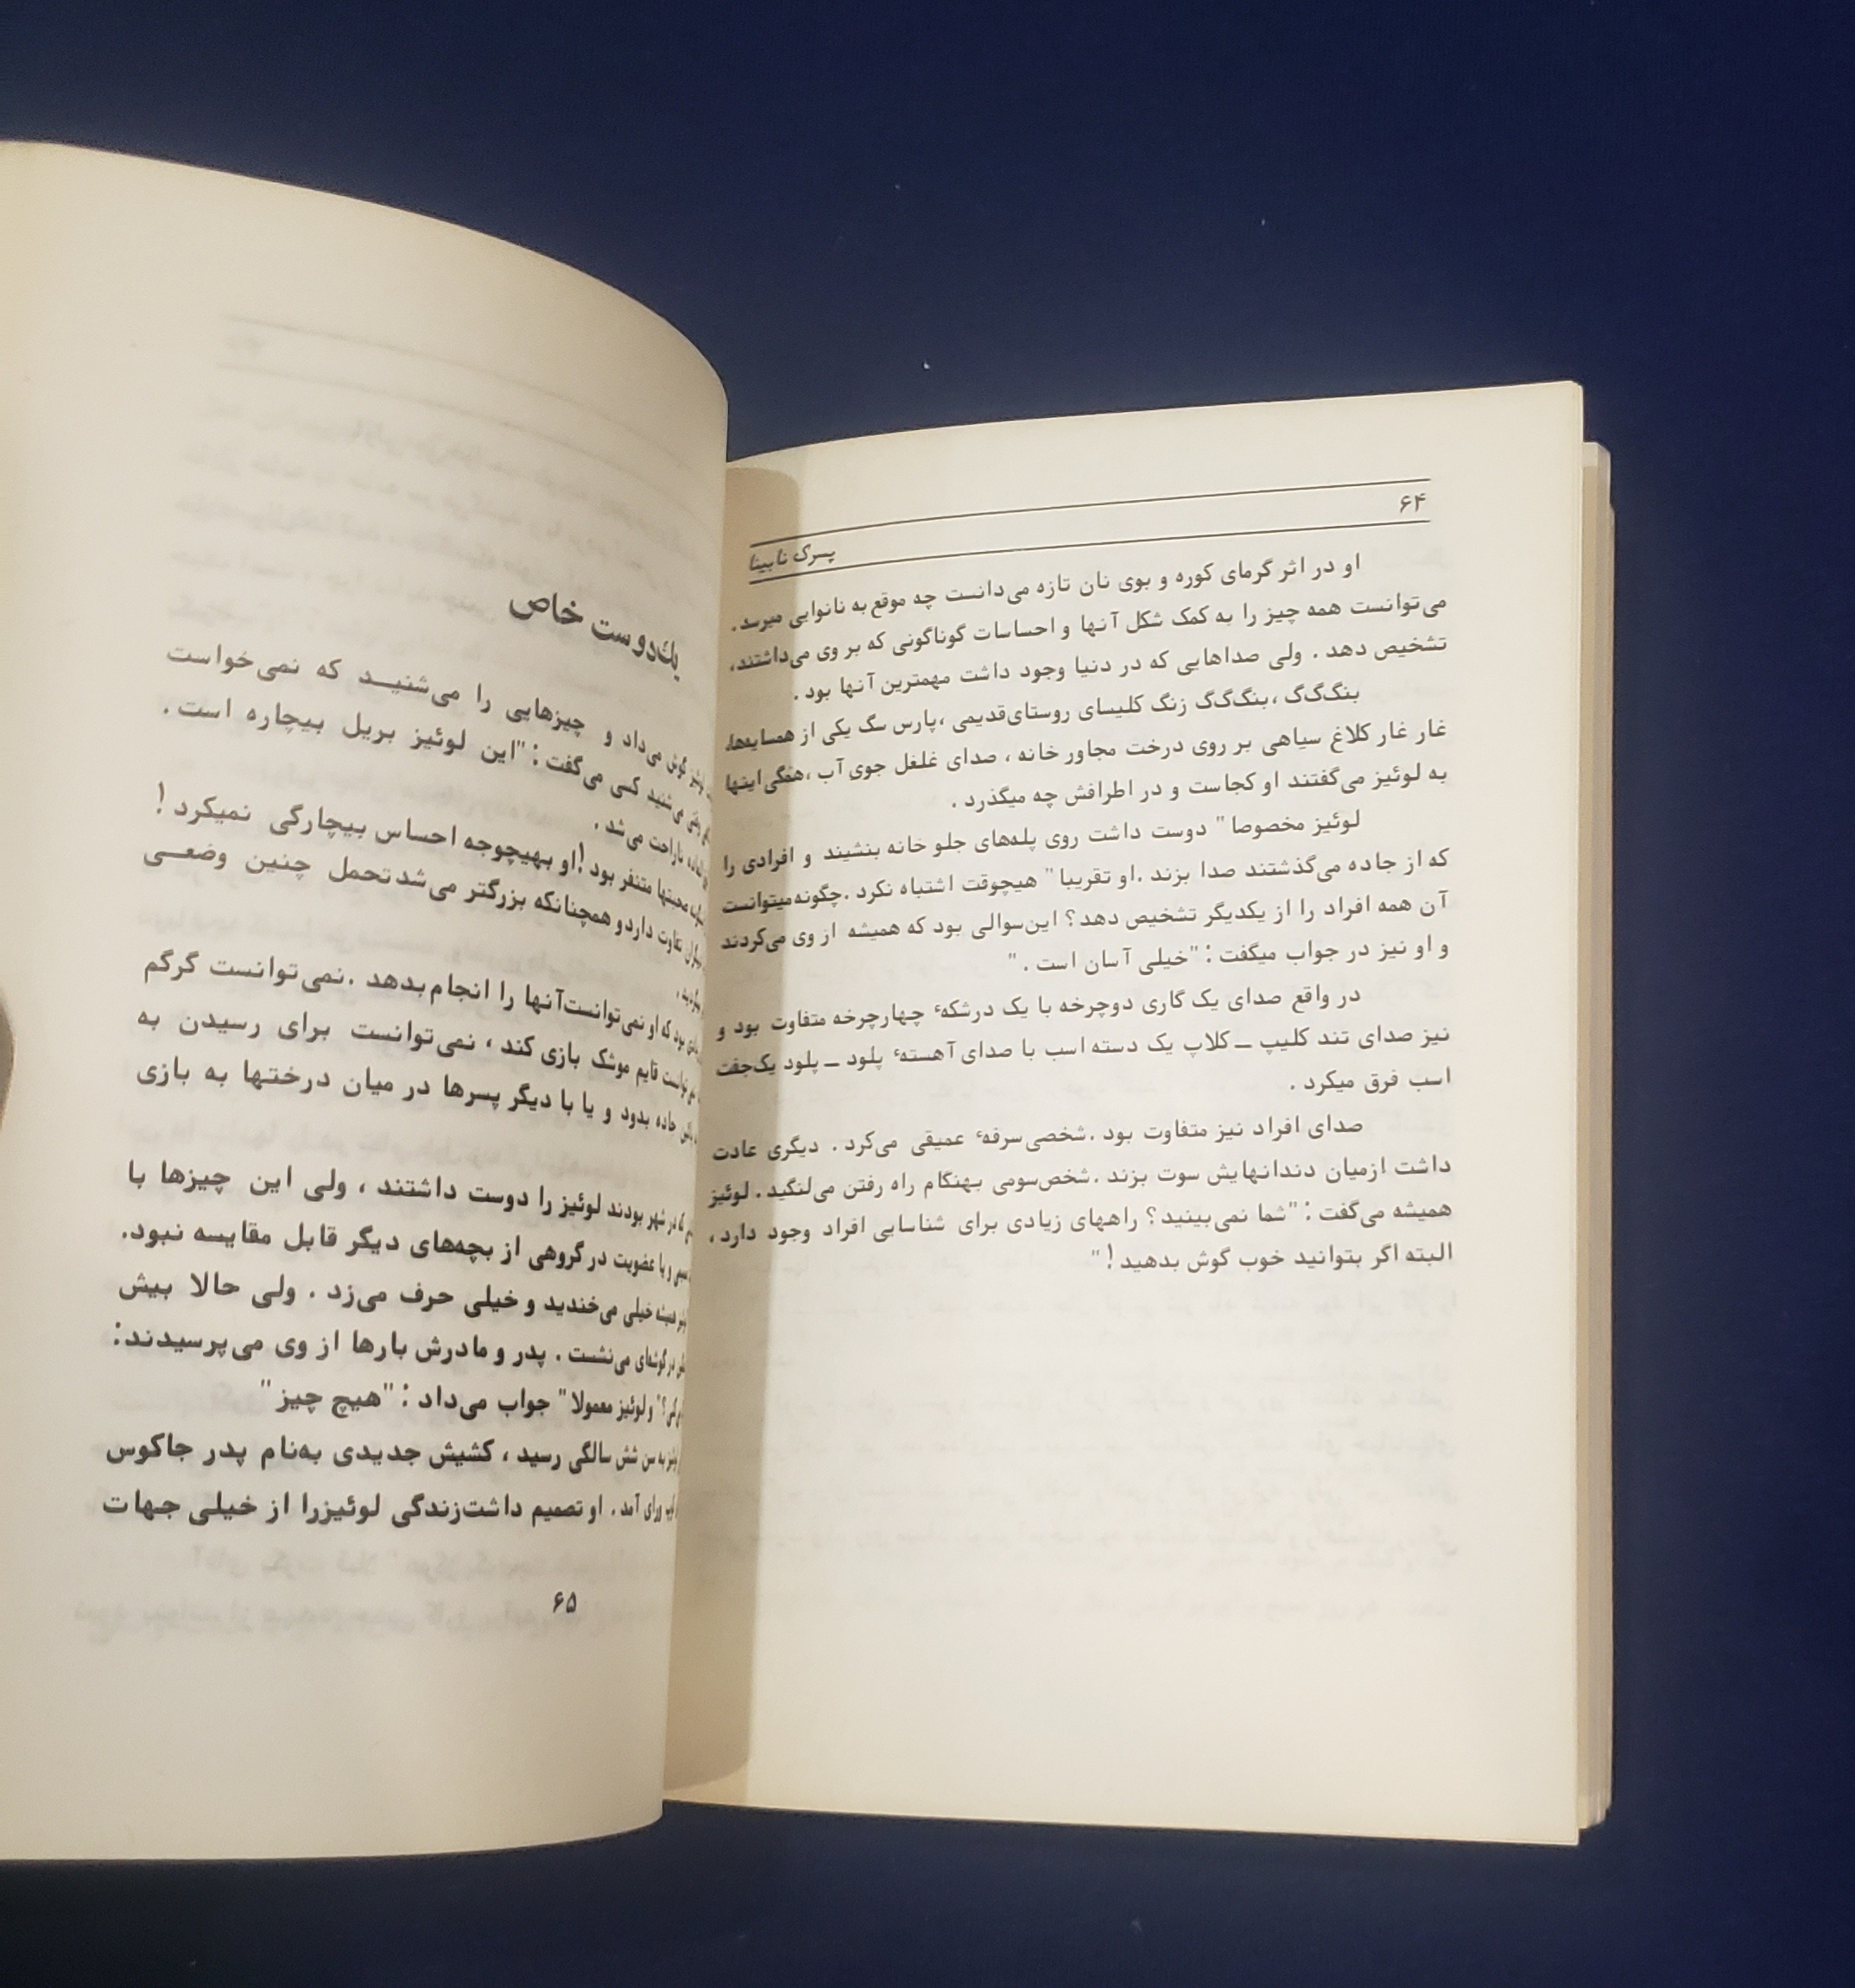 ۶۴
پسرک نابینا
او در اثر گرمای کوره و بوی نان تازه می‌دانست چه موقع به نانوایی میرسد.
می‌توانست همه چیز را به کمک شکل آنها و احساسات گوناگونی که بر وی می‌داشتند،
تشخیص دهد . ولی صداهایی که در دنیا وجود داشت مهمترین آنها بود .
بنگ‌گ‌گ ،بنگ‌گ‌گ زنگ کلیسای روستای‌قدیمی ،پارس سگ یکی از همسایه‌ها،
غار غار کلاغ سیاهی بر روی درخت مجاور خانه ، صدای غلغل جوی آب ،همگی اینها
به لوئیز می‌گفتند او کجاست و در اطرافش چه میگذرد .
لوئیز مخصوصا" دوست داشت روی پله‌های جلو خانه بنشیند و افرادی را
که از جاده می‌گذشتند صدا بزند .او تقریبا" هیچوقت اشتباه نکرد .چگونه‌میتوانست
آن همه افراد را از یکدیگر تشخیص دهد؟ این‌سوالی بود که همیشه از وی می‌کردند
و او نیز در جواب میگفت : "خیلی آسان است . "
در واقع صدای یک گاری دوچرخه با یک درشکهٔ چهارچرخه متفاوت بود و
نیز صدای تند کلیپ ــ کلاپ یک دسته اسب با صدای آهستهٔ پلود ــ پلود یک‌جفت
اسب فرق میکرد .
صدای افراد نیز متفاوت بود .شخصی‌سرفهٔ عمیقی می‌کرد . دیگری عادت
داشت ازمیان دندانهایش سوت بزند .شخص‌سومی بهنگام راه رفتن می‌لنگید . لوئیز
همیشه می‌گفت : "شما نمی‌بینید؟ راههای زیادی برای شناسایی افراد وجود دارد ،
البته اگر بتوانید خوب گوش بدهید ! "
یك‌دوست خاص
گوش می‌داد و چیزهایی را می‌شنیـــد که نمی‌خواست
وقتی می‌شنید کسی می‌گفت : "این لوئیز بریل بیچاره است .
ناراحت می‌شد .
محبتها متنفر بود !او بهیچوجه احساس بیچارگی نمیکرد !
دیگران تفاوت دارد و همچنانکه بزرگتر می‌شد تحمل چنین وضعـــی
بود که او نمی‌توانست‌آنها را انجام‌بدهد .نمی‌توانست گرگم
نمی‌توانست قایم موشک بازی کند ، نمی‌توانست برای رسیدن به
جاده بدود و یا با دیگر پسرها در میان درختها به بازی
که در شهر بودند لوئیز را دوست داشتند ، ولی این چیزها با
و یا عضویت در گروهی از بچه‌های دیگر قابل مقایسه نبود.
همیشه خیلی می‌خندید و خیلی حرف می‌زد . ولی حالا بیش
در گوشه‌ای می‌نشست . پدر و مادرش بارها از وی می‌پرسیدند:
و لوئیز معمولا" جواب می‌داد : "هیچ چیز"
به سن شش سالگی رسید ، کشیش جدیدی به‌نام پدر جاکوس
آمد . او تصمیم داشت‌زندگی لوئیزرا از خیلی جهات
۶۵